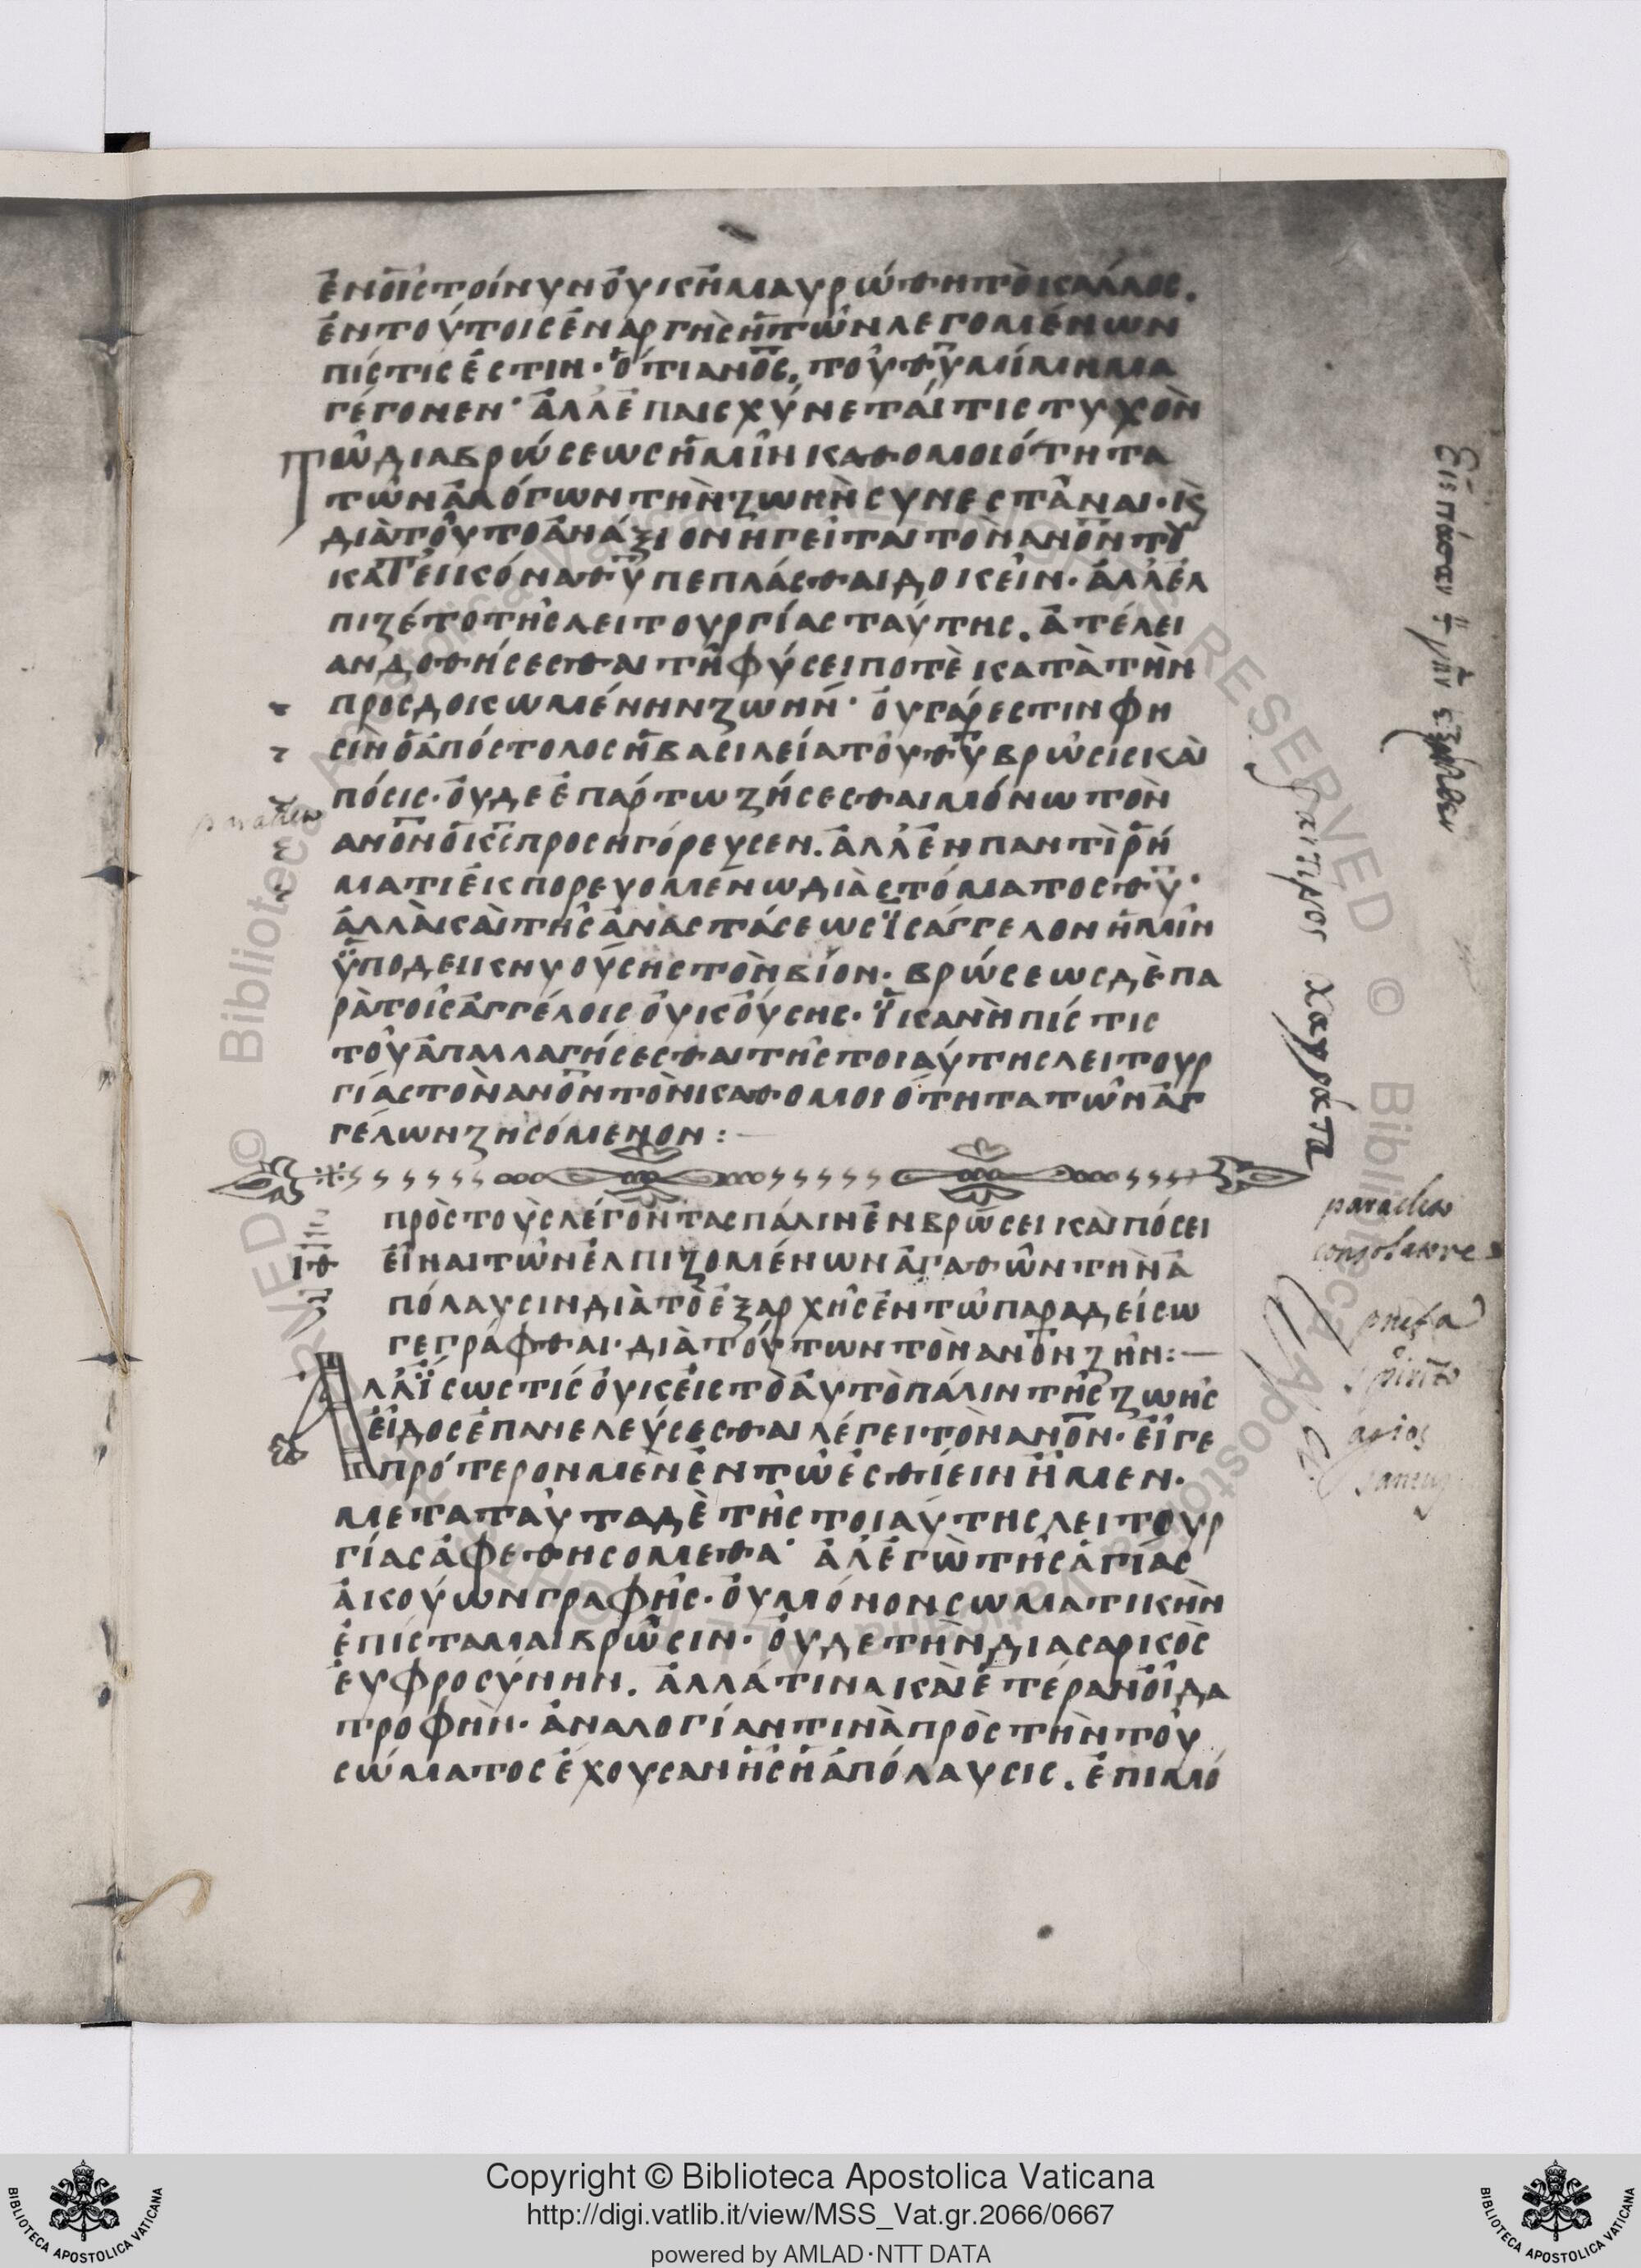 ἐν οἷς τοίνυν οὐκ ἠμαυρώθη τὸ κάλλος.
ἐν τούτοις ἐναργὴς ἡ τῶν λεγομένων
πίστις ἐστιν· ὅτι ανος. τοῦ θυ μίμημα
γέγονεν· ἀλλ' ἐπαισχύνεται τις τυχὸν
τῶ διαβρώσεως ἡμῖν καθομοιότητα
τῶν ἀλόγων τὴν ζωὴν συνεστάναι· κ
διὰ τοῦτο ἀνάξιον ἡγεῖται τὸν ανον τοῦ
κατ' εἰκόνα θυ πεπλάσθαι δοκεῖν· ἀλλ' ἐλ
πιζέτο τῆς λειτουργίας ταύτης. ἀτέλει
αν δοθήσεσθαι τῆ φύσει ποτὲ κατὰ τὴν
προσδοκωμένην ζωήν· οὐ γάρ εστιν φη
σὶν ὁ ἀπόστολος ἡ βασιλεία τοῦ θυ βρῶσις καὶ
πόσις· οὐδε ἐπ' άρτω ζήσεσθαι μόνω τὸν
ανον ὁ κς προσηγόρευσεν. ἀλλ' ἐν παντὶ ῥή
ματι ἐκπορευομένω διὰ στόματος θυ·
ἀλλὰ καὶ τῆς ἀναστάσεως ϊσάγγελον ἡμῖν
ϋποδεικνυούσης τὸν βίον· βρώσεως δὲ πα
ρὰ τοῖς ἀγγέλοις οὐκ οὔσης· ϊκανὴ πίστις
τοῦ ἀπαλλαγήσεσθαι τῆς τοιαύτης λειτουρ
γίας τὸν ανον τὸν καθομοιότητα τῶν ἀγ
γέλων ζησόμενον :—
πρὸς τοὺς λέγοντας πάλιν ἐν βρώσει καὶ πόσει
εἶναι τῶν ἐλπιζομένων ἀγαθῶν τὴν ἀ
ιθ
πόλαυσιν διὰ τὸ ἐξαρχῆς ἐν τῶ παραδείσω
γεγράφθαι· διὰ τούτων τὸν ανον ζῆν :—
Ἀλλ' ἴσως τίς οὐκ εἰς τὸ ἀυτὸ πάλιν τῆς ζωῆς
εἶδος ἐπανελεύσεσθαι λέγει τὸν ανον· εἴγε
πρότερον μὲν ἐν τῶ ἐσθίειν ἦμεν·
μετα ταῦτα δὲ τῆς τοιαύτης λειτουρ
γίας ἀφεθησόμεθα· ἀλ' ἐγὼ τῆς ἁγίας
ἀκούων γραφῆς· οὐ μόνον σωματικὴν
ἐπίσταμαι βρῶσιν· οὐδε τὴν δια σαρκὸς
ἐυφροσύνην. ἀλλά τινα καὶ ἑτέραν οἶδα
τροφὴν· ἀναλογίαν τινὰ πρὸς τὴν τοῦ
σώματος ἐχουσαν ἧς ἡ ἀπόλαυσις. ἐπι μό
Εἰς πάσαν τ γῆν ἐξῆλθεν
χαγράτα
paracleo
consolatore
pnefa
spirito
agios
Copyright © Biblioteca Apostolica Vaticana
http://digi.vatlib.it/view/MSS_Vat.gr.2066/0667
powered by AMLAD·NTT DATA
BIBLIOTECA APOSTOLICA VATICANA
BIBLIOTECA APOSTOLICA VATICANA